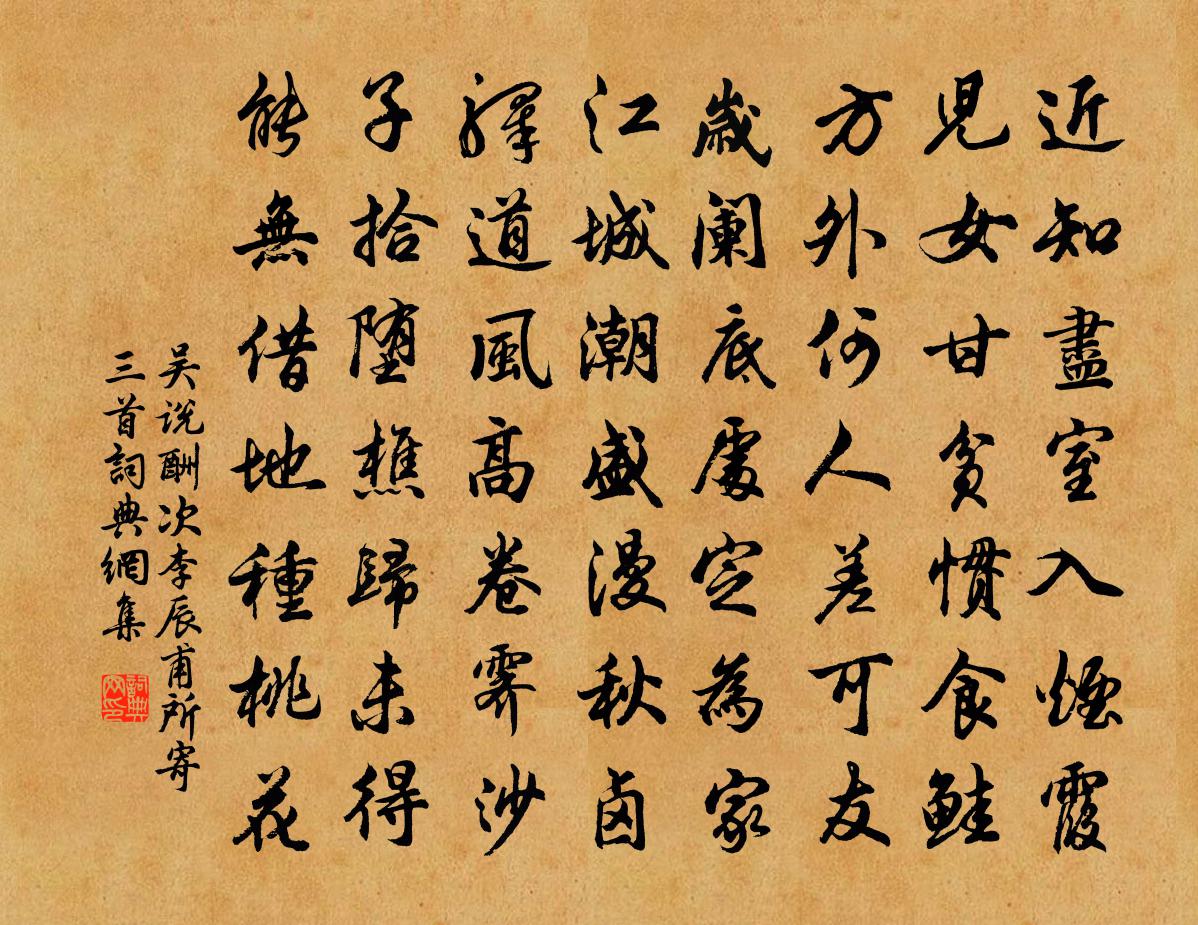 近知盡室入煙霞
兒女甘貧慣食鮭
方外何人差可友
歲闌底處定為家
江城潮盛漫秋鹵
驛道風高卷霽沙
子拾堕樵歸未得
能無借地種桃花
吴说酬次李辰甫所寄
三首詞典網集
詞典
网印